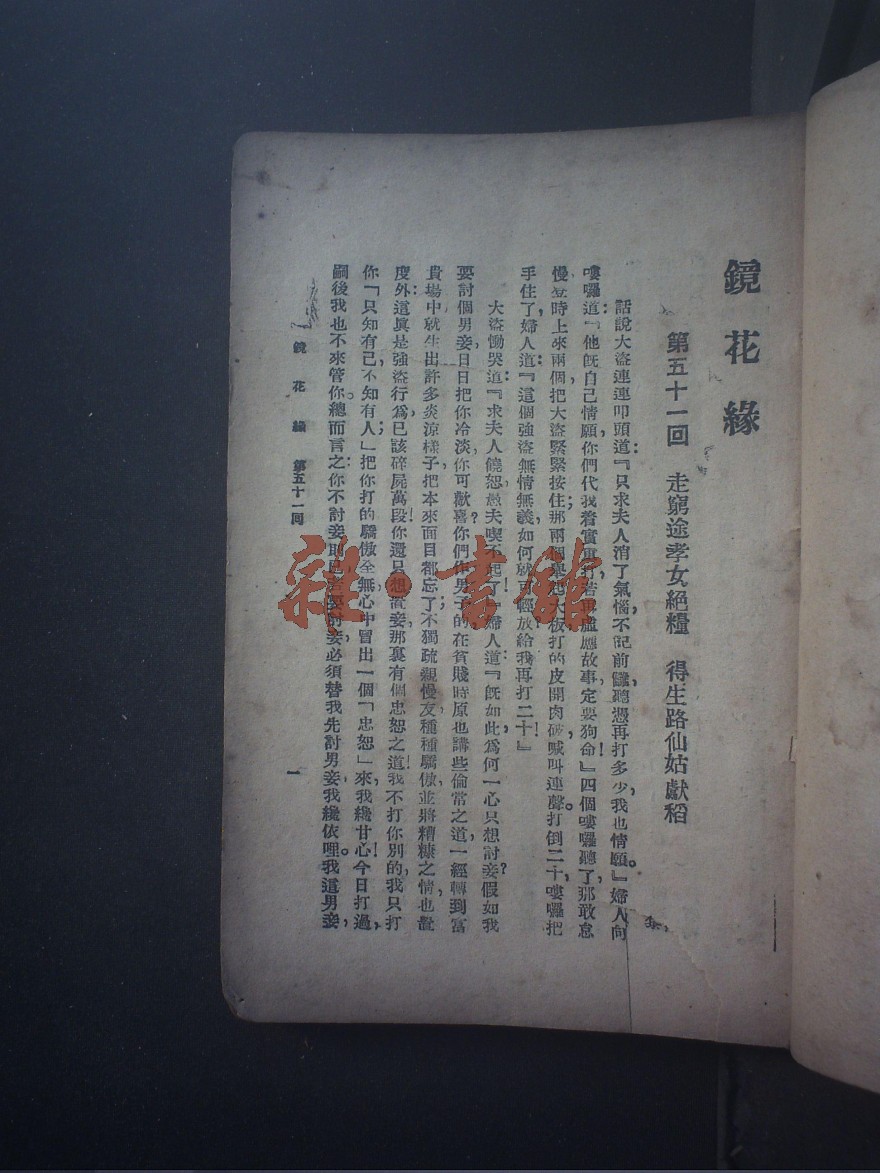 鏡花緣
第五十一回　走窮途孝女絕糧　得生路仙姑獻稻
話說大盜連連叩頭道：『只求夫人消了氣惱，不記前讎，聽憑再打多少，我也情願。』婦人向
嘍囉道：『他既自己情願，你們代我着實重打，若再虛應故事，定要狗命！』四個嘍囉聽了，那敢怠
慢，登時上來兩個，把大盜緊緊按住；那兩個舉起大板，打的皮開肉破，喊叫連聲。打倒二十，嘍囉把
手住了。婦人道：『這個強盜無情無義，如何就可輕放？給我再打二十！』
大盜慟哭道：『求夫人饒恕，愚夫喫不起了！』婦人道：『既如此，爲何一心只想討妾？假如我
要討個男妾，日日把你冷淡，你可歡喜？你們作男子的，在貧賤時原也講些倫常之道，一經轉到富
貴場中，就生出許多炎涼樣子，把本來面目都忘了；不獨疏親慢友，種種驕傲，並將糟糠之情也置
度外：這眞是強盜行爲，已該碎屍萬段！你還只想置妾，那裏有個忠恕之道！我不打你別的，我只打
你「只知有己，不知有人」。把你打的驕傲全無，心中冒出一個「忠恕」來，我纔甘心！今日打過，
嗣後我也不來管你。總而言之：你不討妾則已，若要討妾，必須替我先討男妾，我纔依哩。我這男妾，
鏡花緣　第五十一回
一
雜·書館